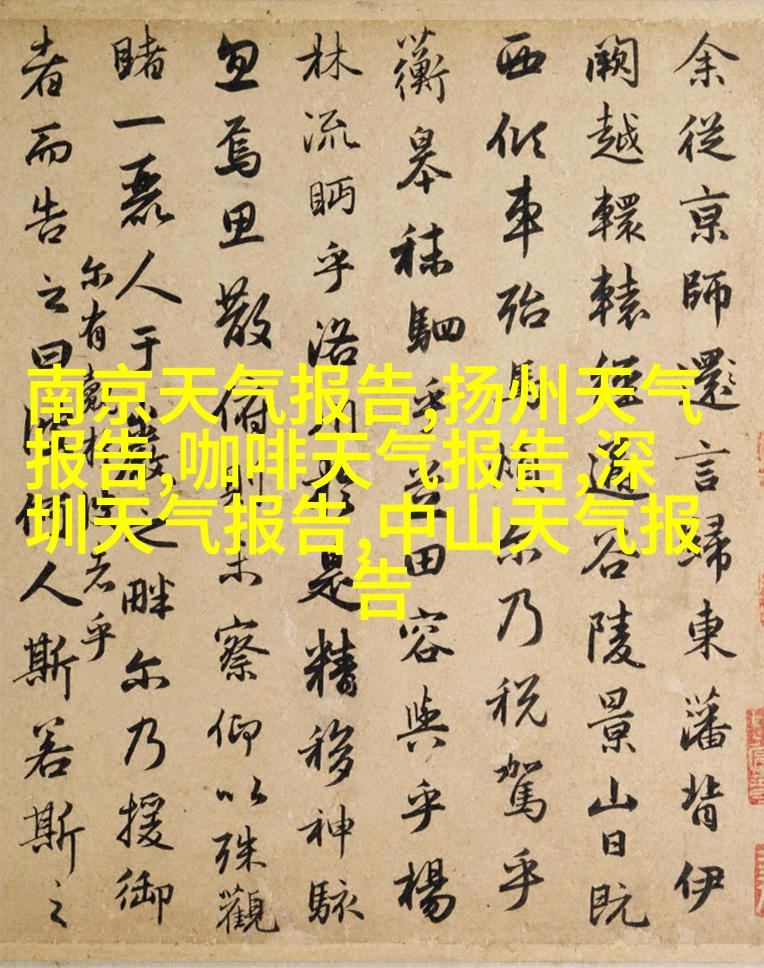 余從京師還言歸東藩背伊
闕越轘轅經通谷陵景山日既
西傾車殆馬煩尔乃税駕乎
蘅皋秣駟乎芝田容與乎楊
林流眄乎洛川於是精移神駭
忽焉思散俯則未察仰以殊觀
睹一麗人于巖之畔尔乃援御
尔有覿於彼者乎
者而告之曰彼何人斯若斯之
南京天气报告,扬州天气
报告,咖啡天气报告,深
圳天气报告,中山天气报
告